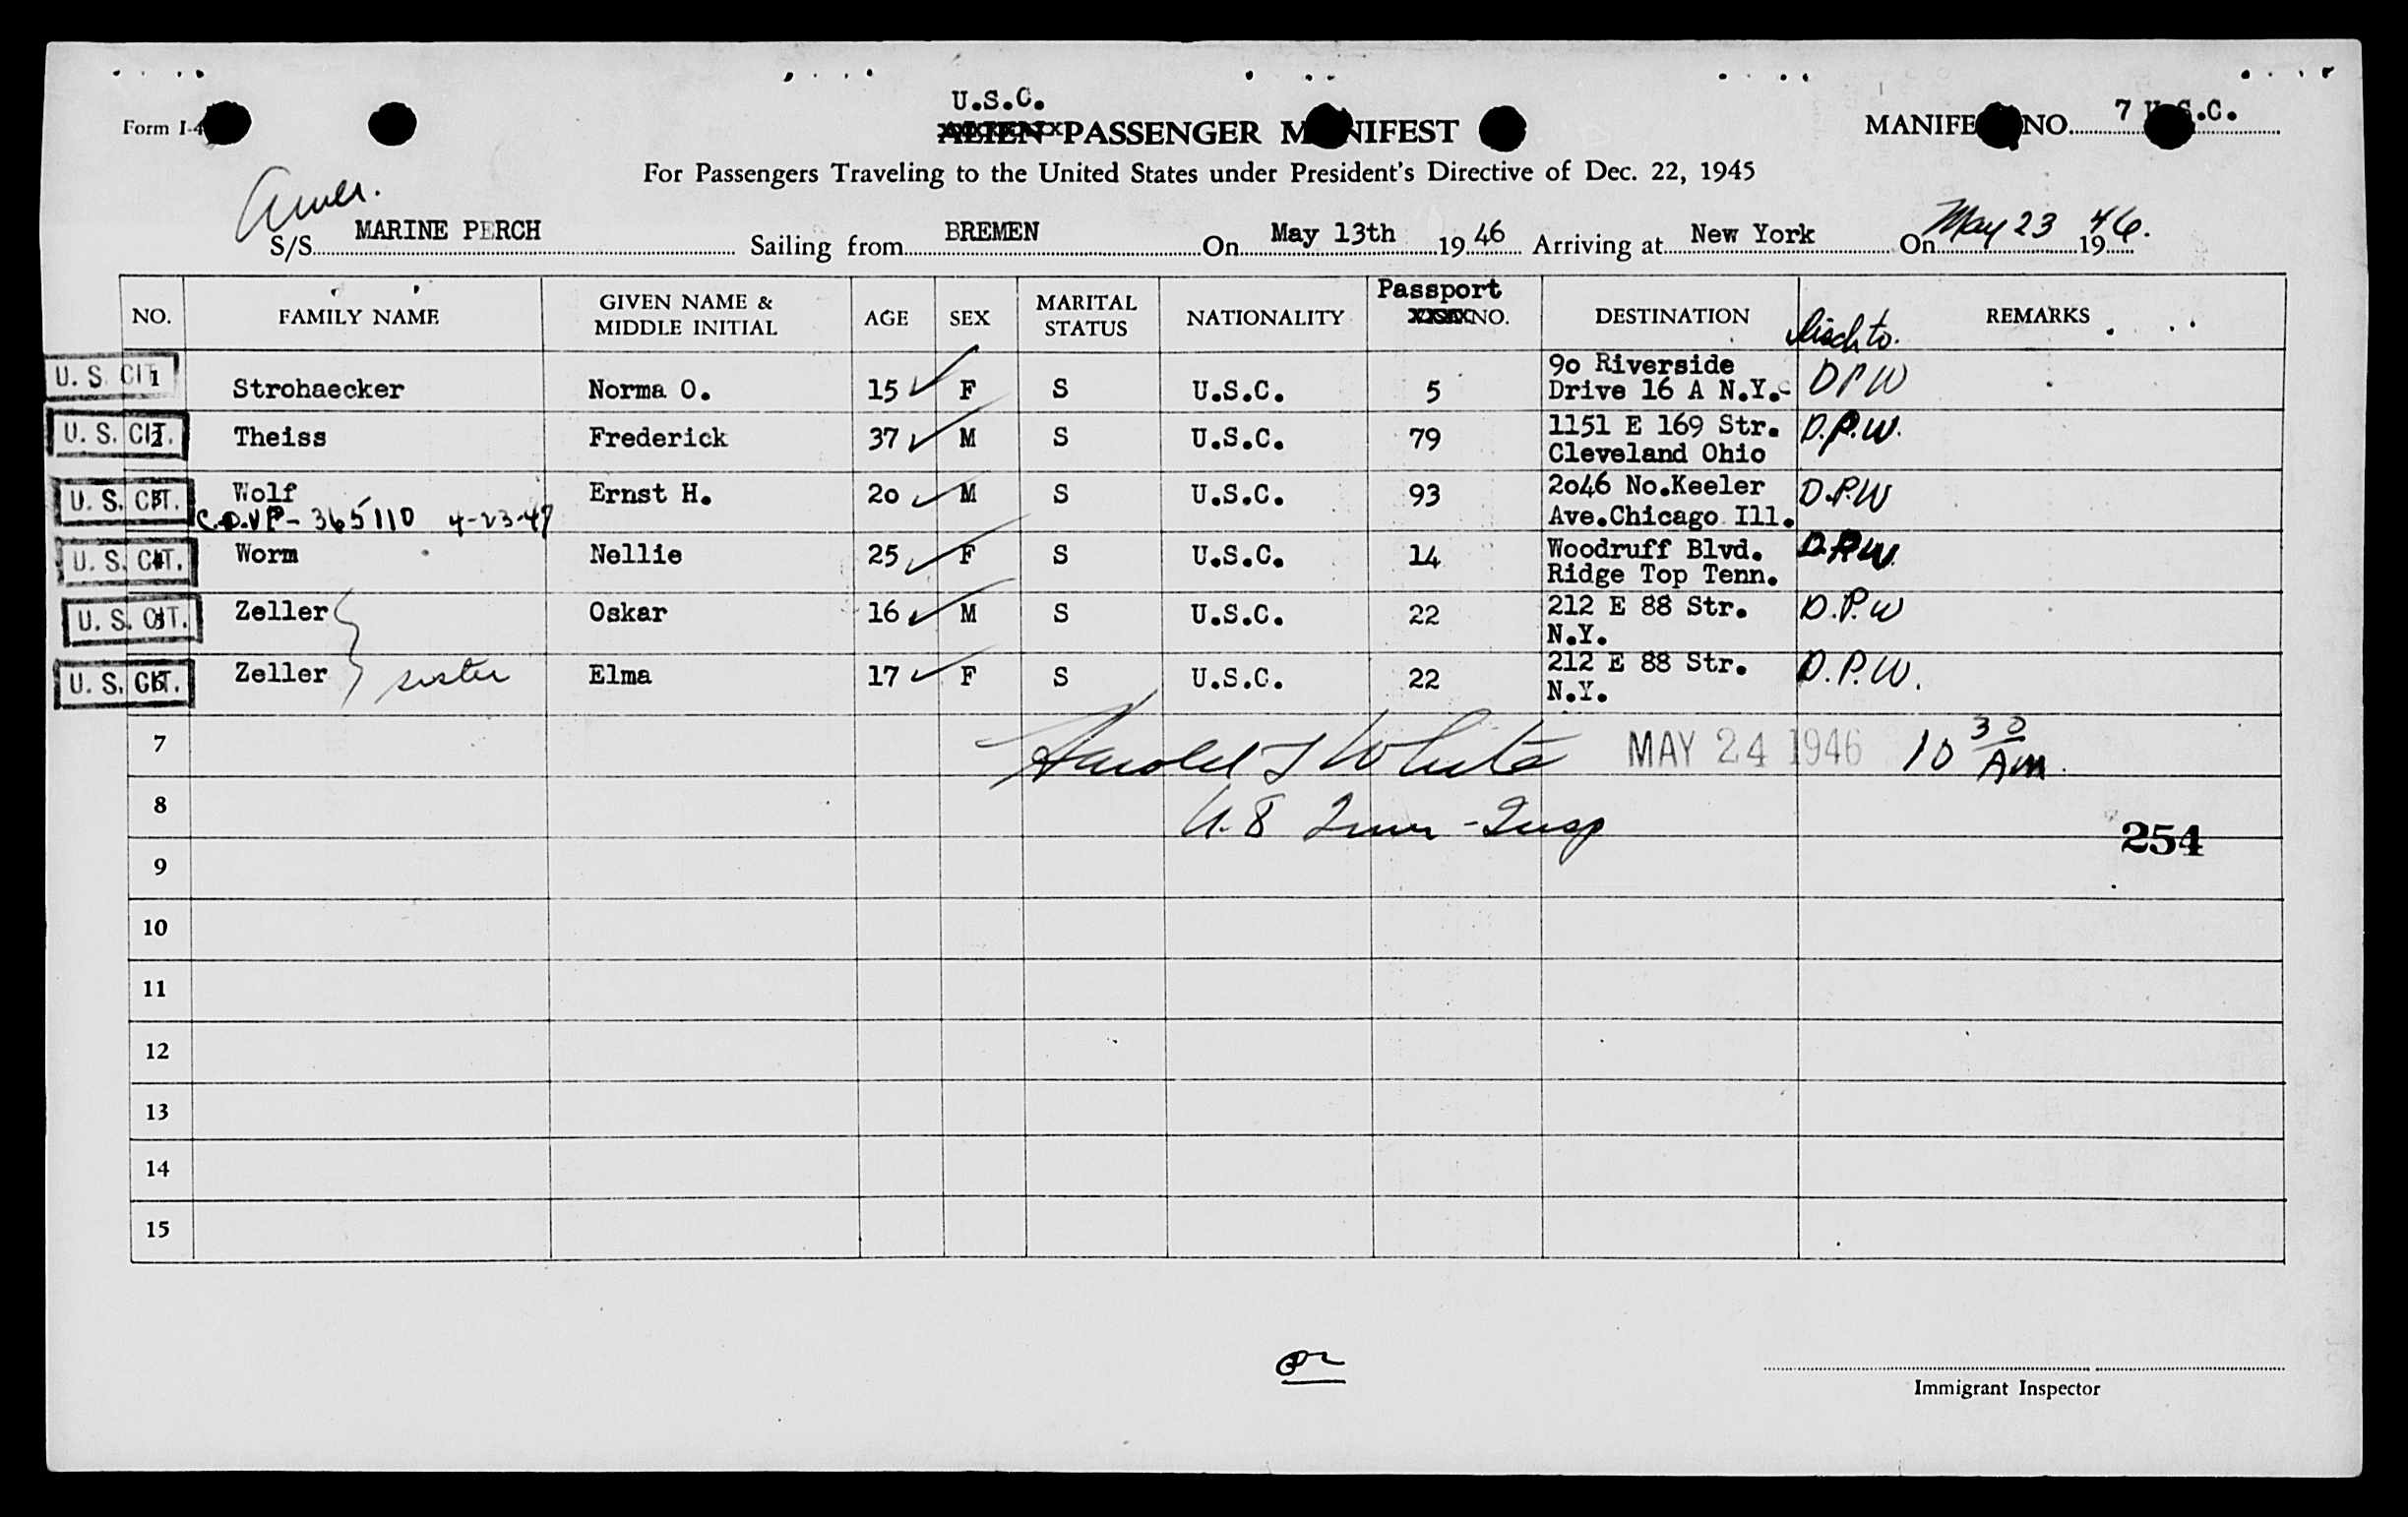 U.S.C.
Form I-4 ALIEN PASSENGER MANIFEST MANIFEST NO. 7 U.S.C.
For Passengers Traveling to the United States under President's Directive of Dec. 22, 1945
Amer.
S/S MARINE PERCH Sailing from BREMEN On May 13th 1946 Arriving at New York On May 23 1946.
NO. FAMILY NAME GIVEN NAME & MIDDLE INITIAL AGE SEX MARITAL STATUS NATIONALITY Passport NO. DESTINATION Disch to. REMARKS
U. S. CIT. 1 Strohaecker Norma O. 15 F S U.S.C. 5 90 Riverside Drive 16 A N.Y. DPW
U. S. CIT. 2 Theiss Frederick 37 M S U.S.C. 79 1151 E 169 Str. Cleveland Ohio D.P.W.
U. S. CIT. 3 Wolf Ernst H. 20 M S U.S.C. 93 2046 No.Keeler Ave.Chicago Ill. D.P.W
C.D.VP- 365110 4-23-47
U. S. CIT. 4 Worm Nellie 25 F S U.S.C. 14 Woodruff Blvd. Ridge Top Tenn. D.P.W.
U. S. CIT. 5 Zeller Oskar 16 M S U.S.C. 22 212 E 88 Str. N.Y. D.P.W
U. S. CIT. 6 Zeller sister Elma 17 F S U.S.C. 22 212 E 88 Str. N.Y. D.P.W.
7 Harold J White MAY 24 1946 10 30 AM.
8 U.S Imm-Insp
254
9
10
11
12
13
14
15
Immigrant Inspector